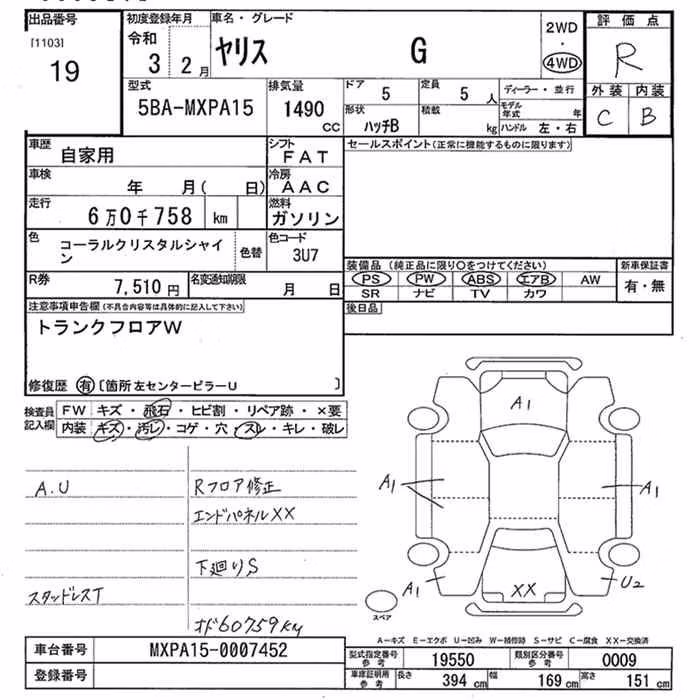 出品番号
[1103]
19
初度登録年月
令和
3 2月
車名・グレード
ヤリス G
2WD
・
4WD
評価点
R
外装 内装
C B
型式
5BA-MXPA15
排気量
1490
CC
ドア
5
定員
5人
形状
ハッチB
積載
kg
ディーラー・並行
モデル年式 年
ハンドル 左・右
車歴
自家用
シフト
FAT
車検
年 月( 日)
冷房
AAC
走行
6万0千758 km
燃料
ガソリン
色
コーラルクリスタルシャイ
ン
色替
色コード
3U7
R券
7,510円
名変通知期限
月 日
セールスポイント(正常に機能するものに限ります)
装備品 (純正品に限り○をつけてください)
PS PW ABS エアB AW
SR ナビ TV カワ
新車保証書
有・無
後日品
注意事項申告欄(不具合内容等は具体的に記入して下さい)
トランクフロアW
修復歴 有 〔箇所 左センターピラーU 〕
検査員
記入欄
FW キズ・飛石・ヒビ割・リペア跡・×要
内装 キズ・汚レ・コゲ・穴・スレ・キレ・破レ
A.U
Rフロア修正
エンドパネルXX
下廻りS
スタッドレスT
オド60759km
A1
A1
A1
A1
XX
U2
スペア
A-キズ E-エクボ U-凹み W-補修跡 S-サビ C-腐食 XX-交換済
車台番号
MXPA15-0007452
登録番号
型式指定番号
参考
19550
類別区分番号
参考
0009
車庫証明用
参考
長さ
394 cm
幅
169 cm
高さ
151 cm